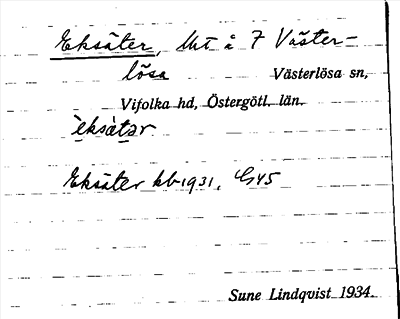 Eksäter, lht å 7 Väster-
lösa Västerlösa sn,
Vifolka hd, Östergötl. län.
èksátər
Eksäter kb 1931, G45
Sune Lindqvist 1934.